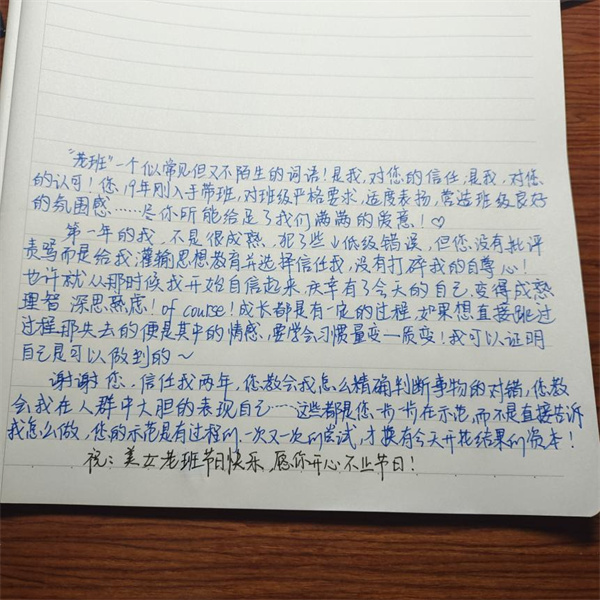 “老班”一个似常见但又不陌生的词语！是我，对您的信任；是我，对您
的认可！您，19年刚入手带班，对班级严格要求，适度表扬，营造班级良好
的氛围感……尽你所能给足了我们满满的爱意！♡
第一年的我，不是很成熟，犯了些小低级错误，但您没有批评
责骂而是给我灌输思想教育并选择信任我，没有打碎我的自尊心！
也许就从那时候我开始自信起来，庆幸有了今天的自己，变得成熟
理智，深思熟虑！of course！成长都是有一定的过程，如果想直接跳过
过程那失去的便是其中的情感，要学会习惯量变—质变！我可以证明
自己是可以做到的～
谢谢您，信任我两年，您教会我怎么精确判断事物的对错，您教
会我在人群中大胆的表现自己……这些都是您一步一步在示范，而不是直接告诉
我怎么做，您的示范是有过程的，一次又一次的尝试，才换有今天开花结果的资本！
祝：美女老班节日快乐，愿你开心不止节日！